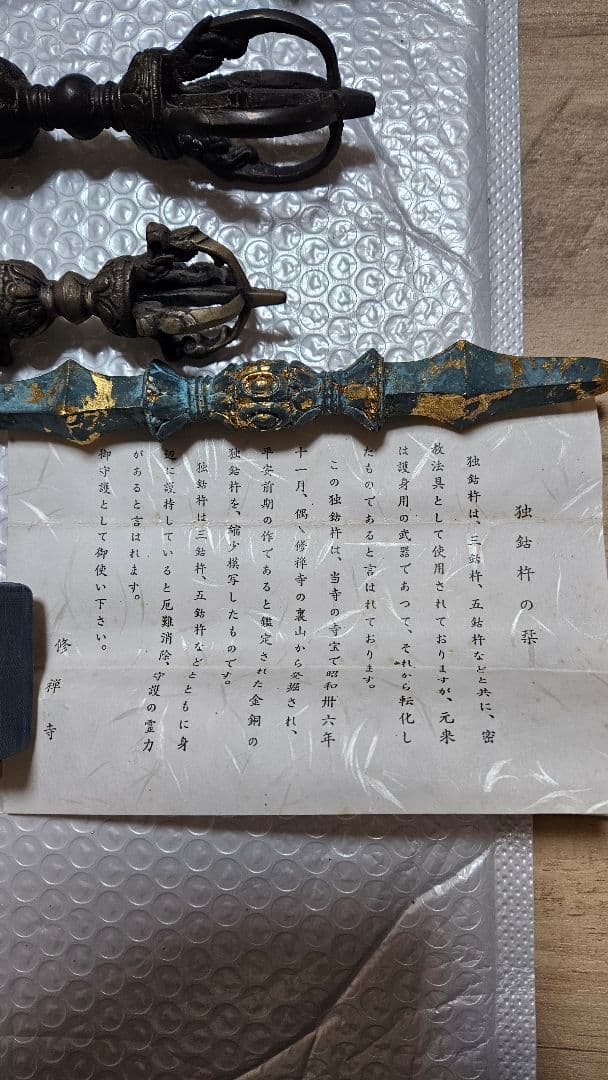 独鈷杵の栞
独鈷杵は、三鈷杵、五鈷杵などと共に、密
教法具として使用されておりますが、元来
は護身用の武器であつて、それから転化し
たものであると言はれております。
この独鈷杵は、当寺の寺宝で昭和卅六年
十一月、偶〱修禅寺の裏山から発掘され、
平安前期の作であると鑑定された金銅の
独鈷杵を、縮少模写したものです。
独鈷杵は三鈷杵、五鈷杵などとともに身
辺に護持していると厄難消除、守護の霊力
があると言はれます。
御守護として御使い下さい。
修禅寺